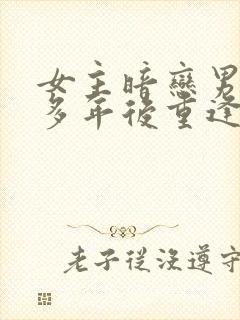 女主暗戀男
多年後重逢
老子從沒遵守